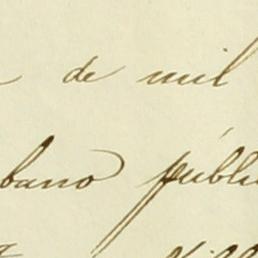 de mil
bano públi